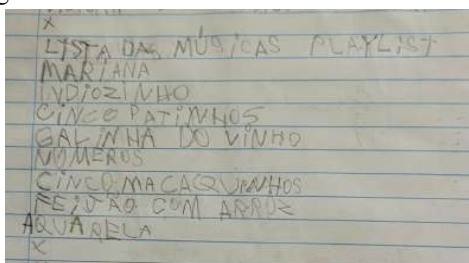 X
LISTA DAS MÚSICAS PLAYLIST
MARIANA
INDIOZINHO
CINCO PATINHOS
GALINHA DO VINHO
NÚMEROS
CINCO MACAQUINHOS
FEIJÃO COM ARROZ
AQUARELA
X